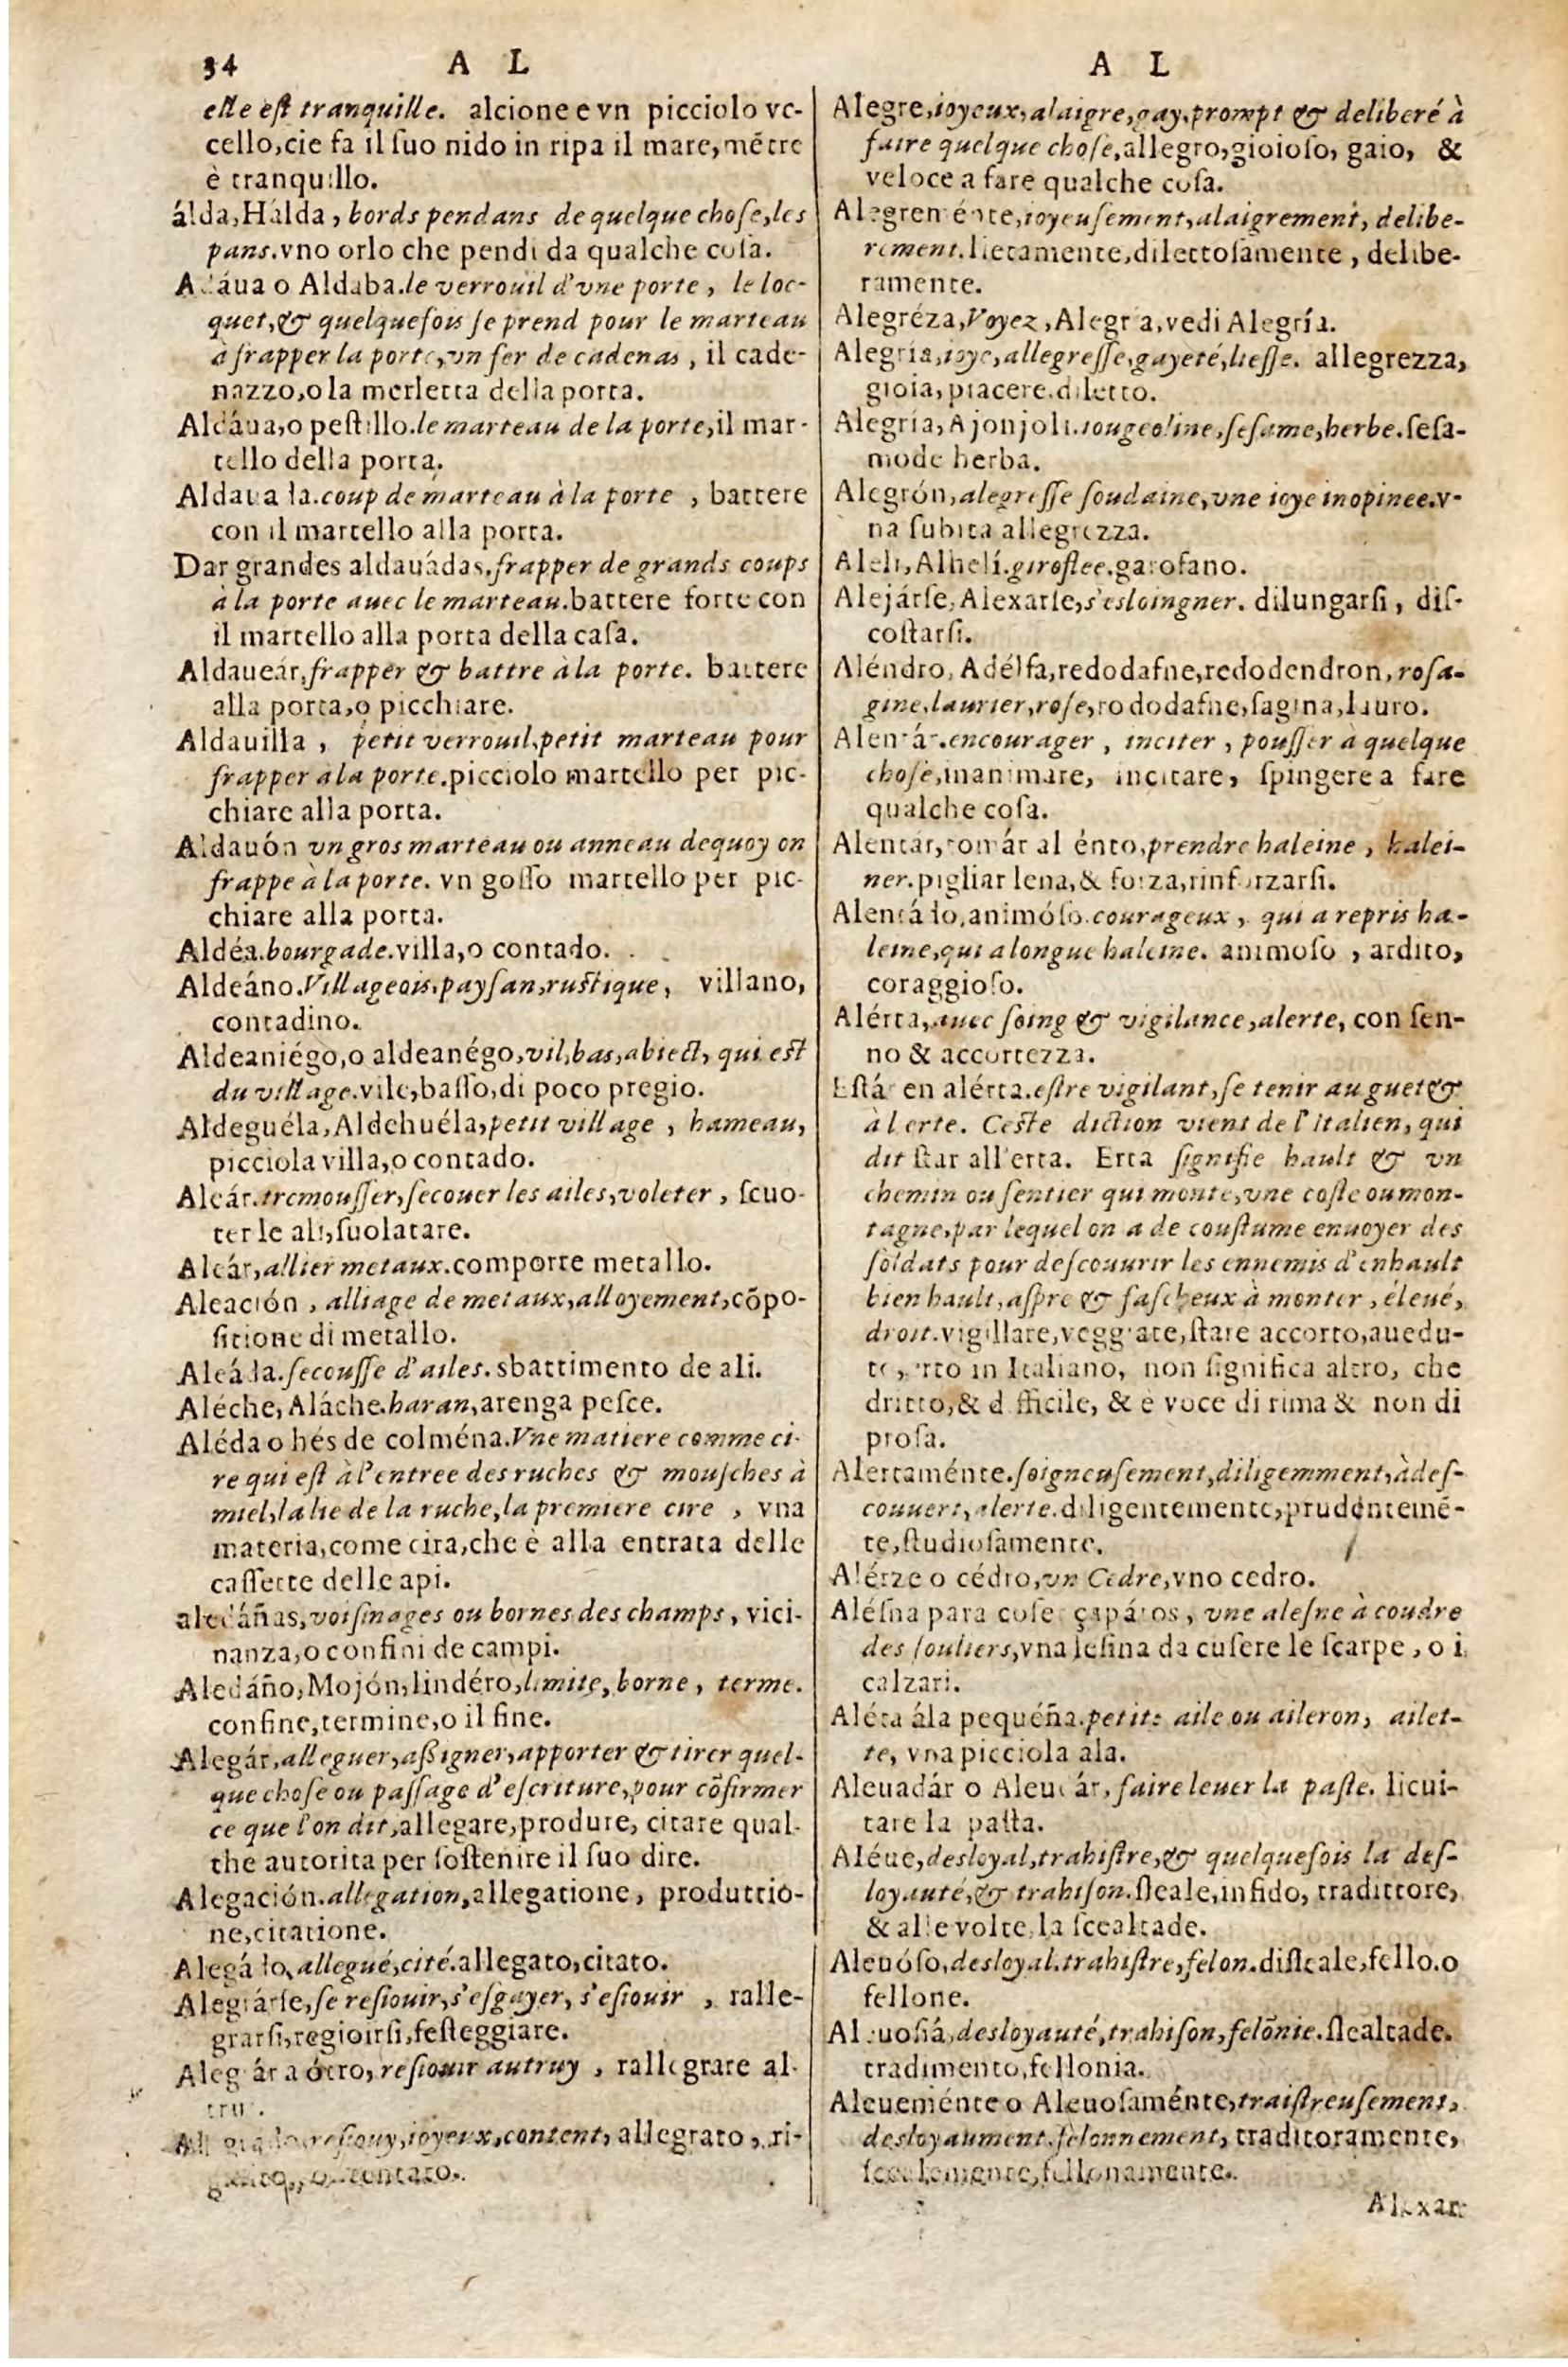 34 A L
elle est tranquille. alcione e vn picciolo vc-
cello, cie fa il ſuo nido in ripa il mare, mẽtre
è tranquillo.
álda, Hálda, bords pendans de quelque choſe, les
pans. vno orlo che pendi da qualche coſa.
Aldáua o Aldaba. le verrouil d'vne porte, le loc-
quet, & quelquefois ſe prend pour le marteau
à frapper la porte, vn fer de cadenas, il cade-
nazzo, o la merletta della porta.
Aldáua, o peſtillo. le marteau de la porte, il mar-
tello della porta.
Aldauada. coup de marteau à la porte, battere
con il martello alla porta.
Dar grandes aldauádas. frapper de grands coups
à la porte auec le marteau. battere forte con
il martello alla porta della caſa.
Aldauear, frapper & battre à la porte. battere
alla porta, o picchiare.
Aldauilla, petit verrouil, petit marteau pour
frapper à la porte. picciolo martello per pic-
chiare alla porta.
Aldauón vn gros marteau ou anneau dequoy on
frappe à la porte. vn goſſo martello per pic-
chiare alla porta.
Aldéa. bourgade. villa, o contado.
Aldeáno. Villageois, payſan, ruſtique, villano,
contadino.
Aldeaniégo, o aldeanégo, vil, bas, abiect, qui eſt
du village. vile, baſſo, di poco pregio.
Aldeguéla, Aldehuéla, petit village, hameau,
picciola villa, o contado.
Aleár. tremouſſer, ſecouer les ailes, voleter, ſcuo-
ter le ali, ſuolatare.
Aleár, allier metaux. comporre metallo.
Aleación, alliage de metaux, alloyement, cõpo-
ſitione di metallo.
Aleáda. ſecouſſe d'ailes. sbattimento de ali.
Aléche, Aláche. haran, arenga peſce.
Aléda o hés de colména. Vne matiere comme ci-
re qui eſt à l'entree des ruches & mouſches à
miel, la lie de la ruche, la premiere cire, vna
materia, come cira, che è alla entrata delle
caſſette delle api.
aledáñas, voiſinages ou bornes des champs, vici-
nanza, o confini de campi.
Aledáño, Mojón, lindéro, limite, borne, terme.
confine, termine, o il fine.
Alegár, alleguer, aſsigner, apporter & tirer quel-
que choſe ou paſſage d'eſcriture, pour cõfirmer
ce que l'on dit, allegare, produre, citare qual-
the autorita per ſoſtenire il ſuo dire.
Alegación. allegation, allegatione, produttio-
ne, citatione.
Alegádo, allegué, cité. allegato, citato.
Alegrárſe, ſe reſiouir, s'eſgayer, s'eſiouir, ralle-
grarſi, regioirſi, feſteggiare.
Alegrár a ótro, reſiouir autruy, rallegrare al-
trui.
reſiouy, ioyeux, content, allegrato, ri-
A L
Alegre, ioyeux, alaigre, gay, prompt & deliberé à
faire quelque choſe, allegro, gioioſo, gaio, &
veloce a fare qualche coſa.
Alegreménte, ioyeuſement, alaigrement, delibe-
rement. lietamente, dilettoſamente, delibe-
ramente.
Alegréza, Voyez, Alegria, vedi Alegría.
Alegria, ioye, allegreſſe, gayeté, lieſſe. allegrezza,
gioia, piacere, diletto.
Alegria, Ajonjoli. iougeoline, ſeſame, herbe. ſeſa-
mode herba.
Alegrón, alegreſſe ſoudaine, vne ioye inopinee. v-
na ſubita allegrezza.
Aleli, Alhelí. giroflee. garofano.
Alejárſe, Alexarſe, s'esloingner. dilungarſi, diſ-
coſtarſi.
Aléndro, Adélfa, redodafne, redodendron, roſa-
gine, laurier, roſe, rododafne, ſagina, lauro.
Alentár. encourager, inciter, pouſſer à quelque
choſe, inanimare, incitare, ſpingere a fare
qualche coſa.
Alentár, tomár al énto, prendre haleine, halei-
ner. pigliar lena, & forza, rinforzarſi.
Alentádo, animóſo. courageux, qui a repris ha-
leine, qui a longue haleine. animoſo, ardito,
coraggioſo.
Alérta, auec ſoing & vigilance, alerte, con ſen-
no & accortezza.
Eſtár en alérta. eſtre vigilant, ſe tenir au guet &
à l erte. Ceſte diction vient de l'Italien, qui
dit ſtar all'erta. Erta ſignifie hault & vn
chemin ou ſentier qui monte, vne coſte ou mon-
tagne, par lequel on a de couſtume enuoyer des
ſoldats pour deſcouurir les ennemis d'enhault
bien hault, aſpre & faſcheux à monter, éleué,
droit. vigillare, vegghiare, ſtare accorto, auedu-
to, erto in Italiano, non ſignifica altro, che
dritto, & difficile, & è voce di rima & non di
proſa.
Alertaménte. ſoigneuſement, diligemment, à deſ-
couuert, alerte. diligentemente, prudentemẽ-
te, ſtudioſamente.
Alérze o cédro, vn Cedre, vno cedro.
Aléſna para coſer çapátos, vne aleſne à coudre
des ſouliers, vna leſina da cuſere le ſcarpe, o i
calzari.
Aléta ála pequéña. petite aile ou aileron, ailet-
te, vna picciola ala.
Aleuadár o Aleudár, faire leuer la paſte. licui-
tare la paſta.
Aléue, desloyal, trahiſtre, & quelquefois la deſ-
loyauté, & trahiſon. ſleale, infido, tradittore,
& alle volte, la ſcealtade.
Aleuóſo, desloyal. trahiſtre, felon. disleale, fello. o
fellone.
Aleuoſiá, desloyauté, trahiſon, felõnie. ſlealtade.
tradimento, fellonia.
Aleueménte o Aleuoſaménte, traiſtreuſement,
desloyaument. felonnement, traditoramente,
fellonamente.